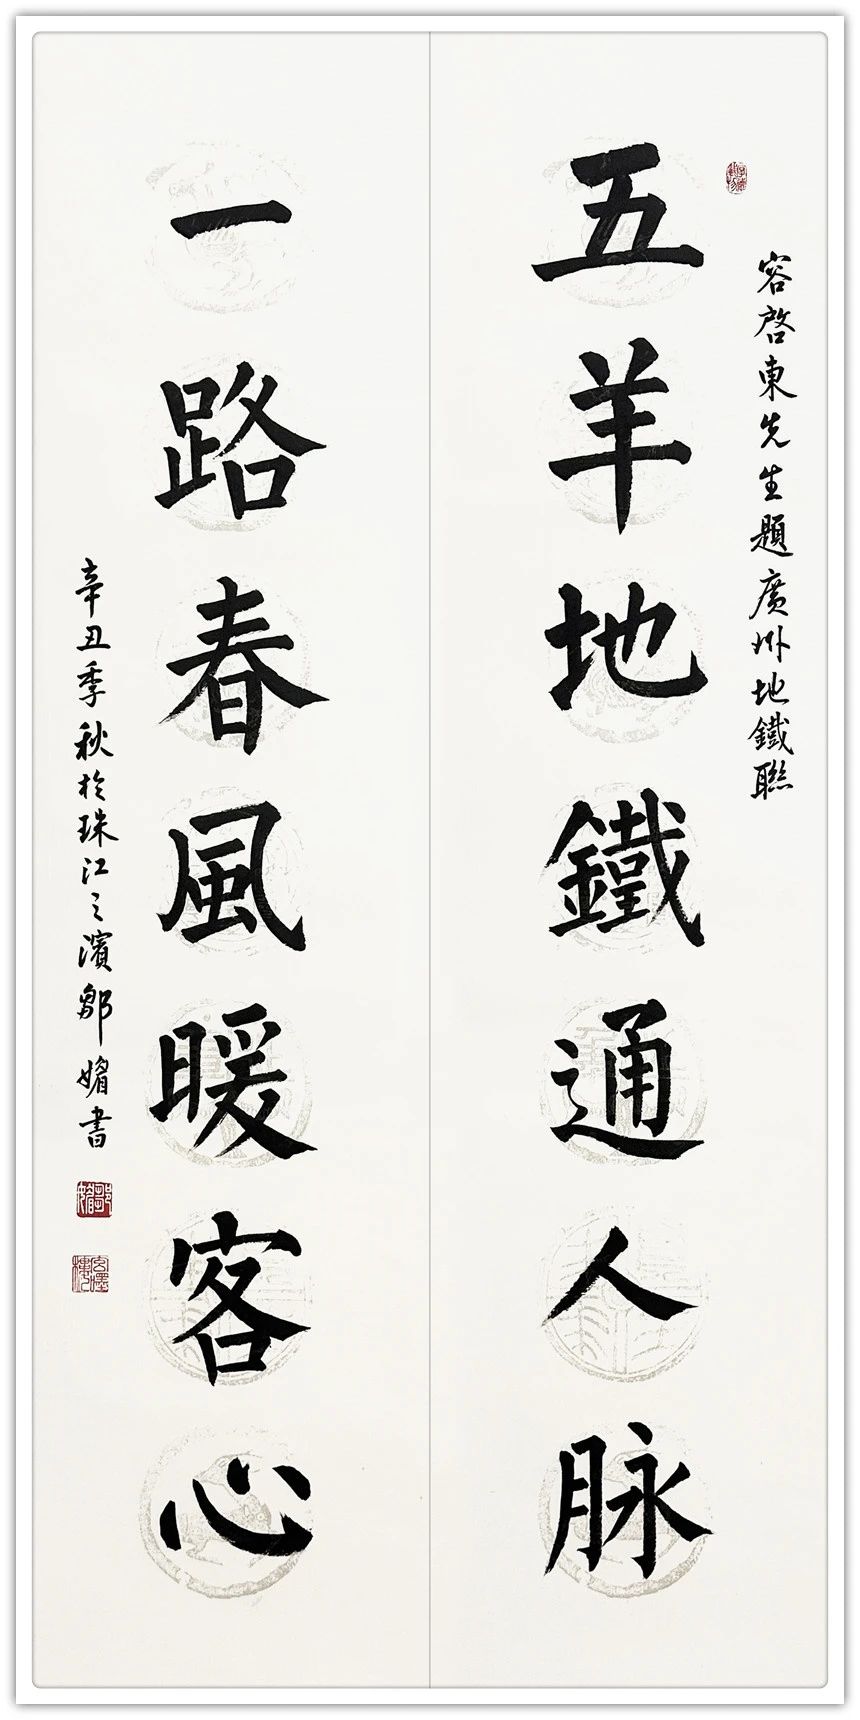 容啓東先生題廣州地鐵聯
五羊地鐵通人脉
一路春風暖客心
辛丑季秋於珠江之濱鄒媚書